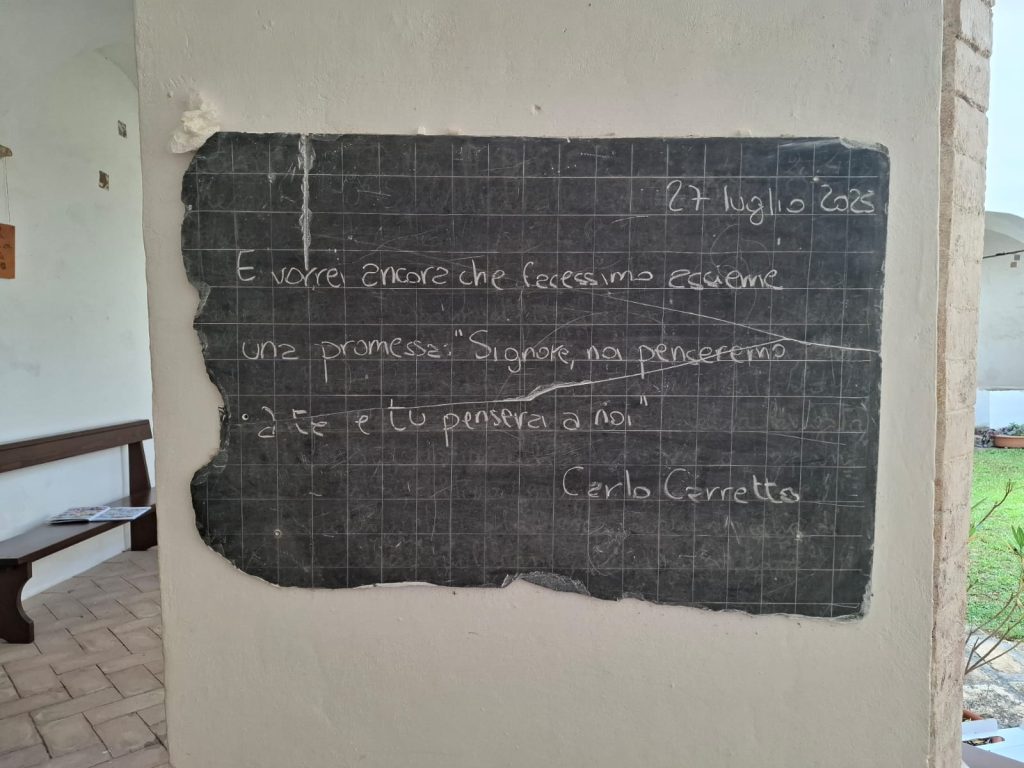 27 luglio 2023
E vorrei ancora che facessimo assieme
una promessa: "Signore, noi penseremo
a te e tu penserai a noi"
Carlo Carretto